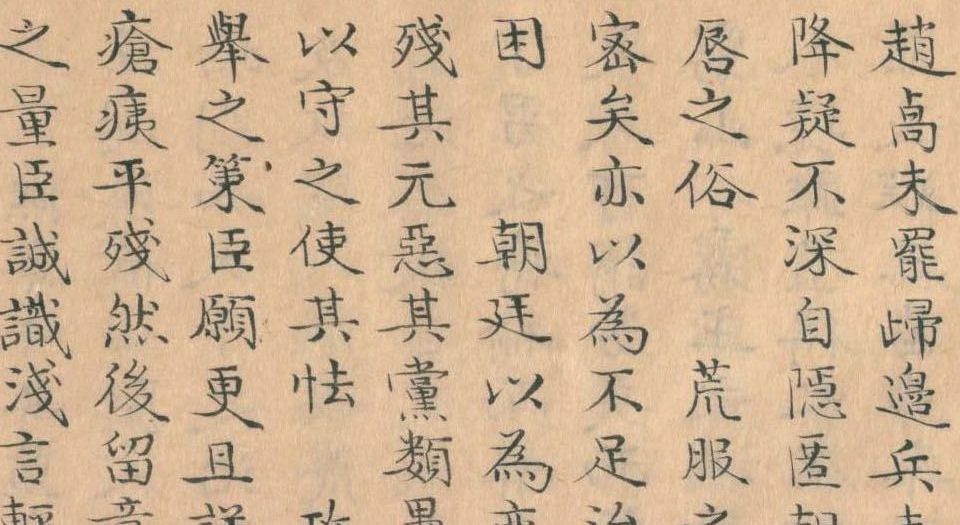 趙卨未罷歸邉兵
降疑不深自隠匿
唇之俗 荒服之
宻矣亦以為不足治
困 朝廷以為
殘其元惡其黨類
以守之使其怯
舉之策臣願更且詳
瘡痍平殘然後留意
之量臣誠識淺言輕